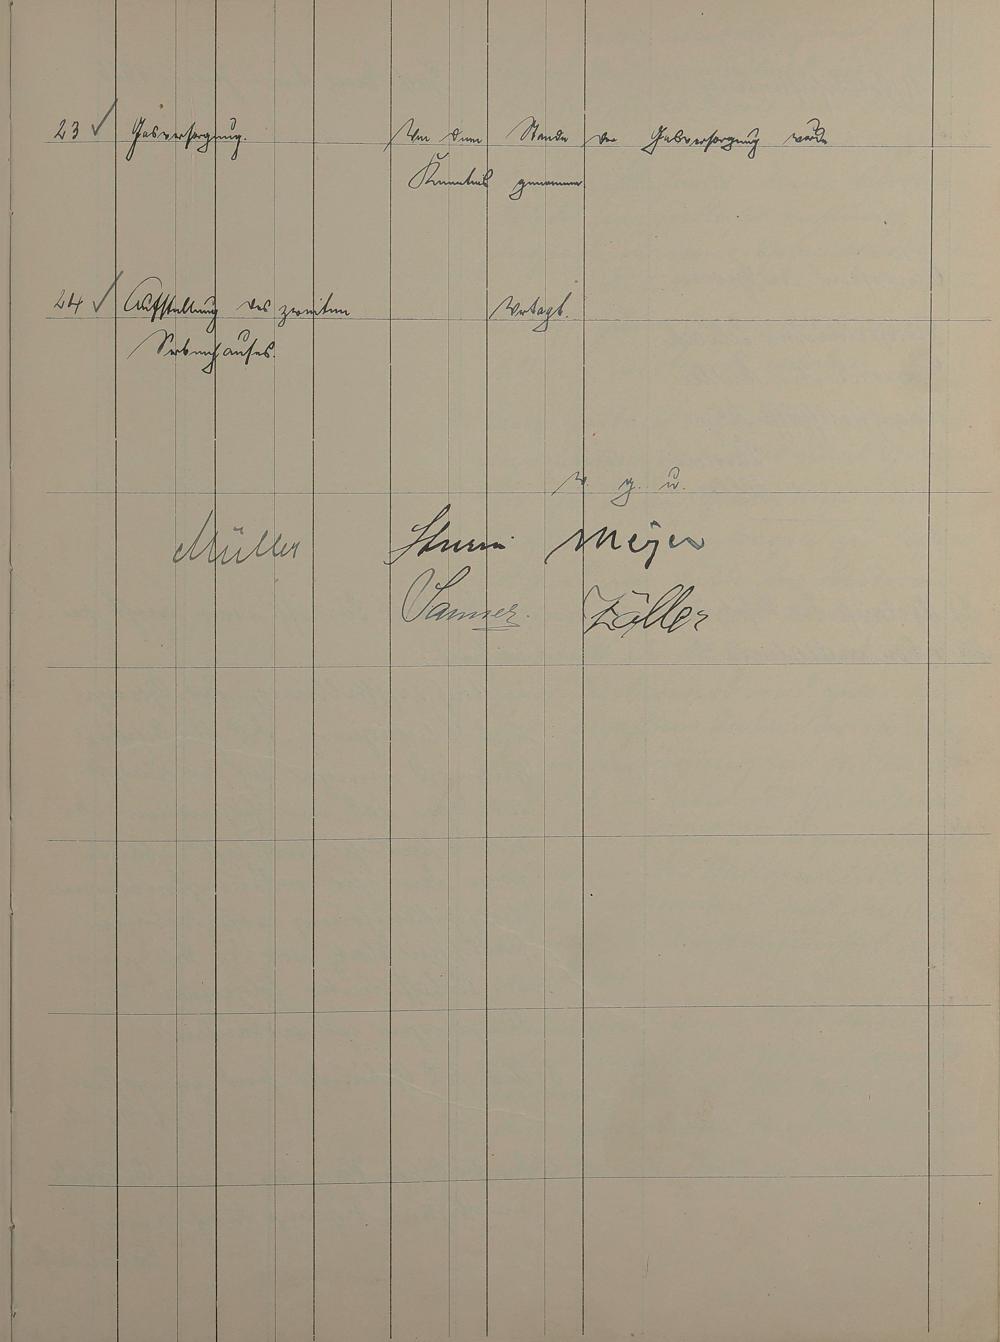 23 Gasversorgung. Von dem Stande der Gasversorgung wurde
Kenntnis genommen.
24 Aufstellung des zweiten Vertagt.
v. g. u.
Müller Sturm Meyer
Sanner. Zöller